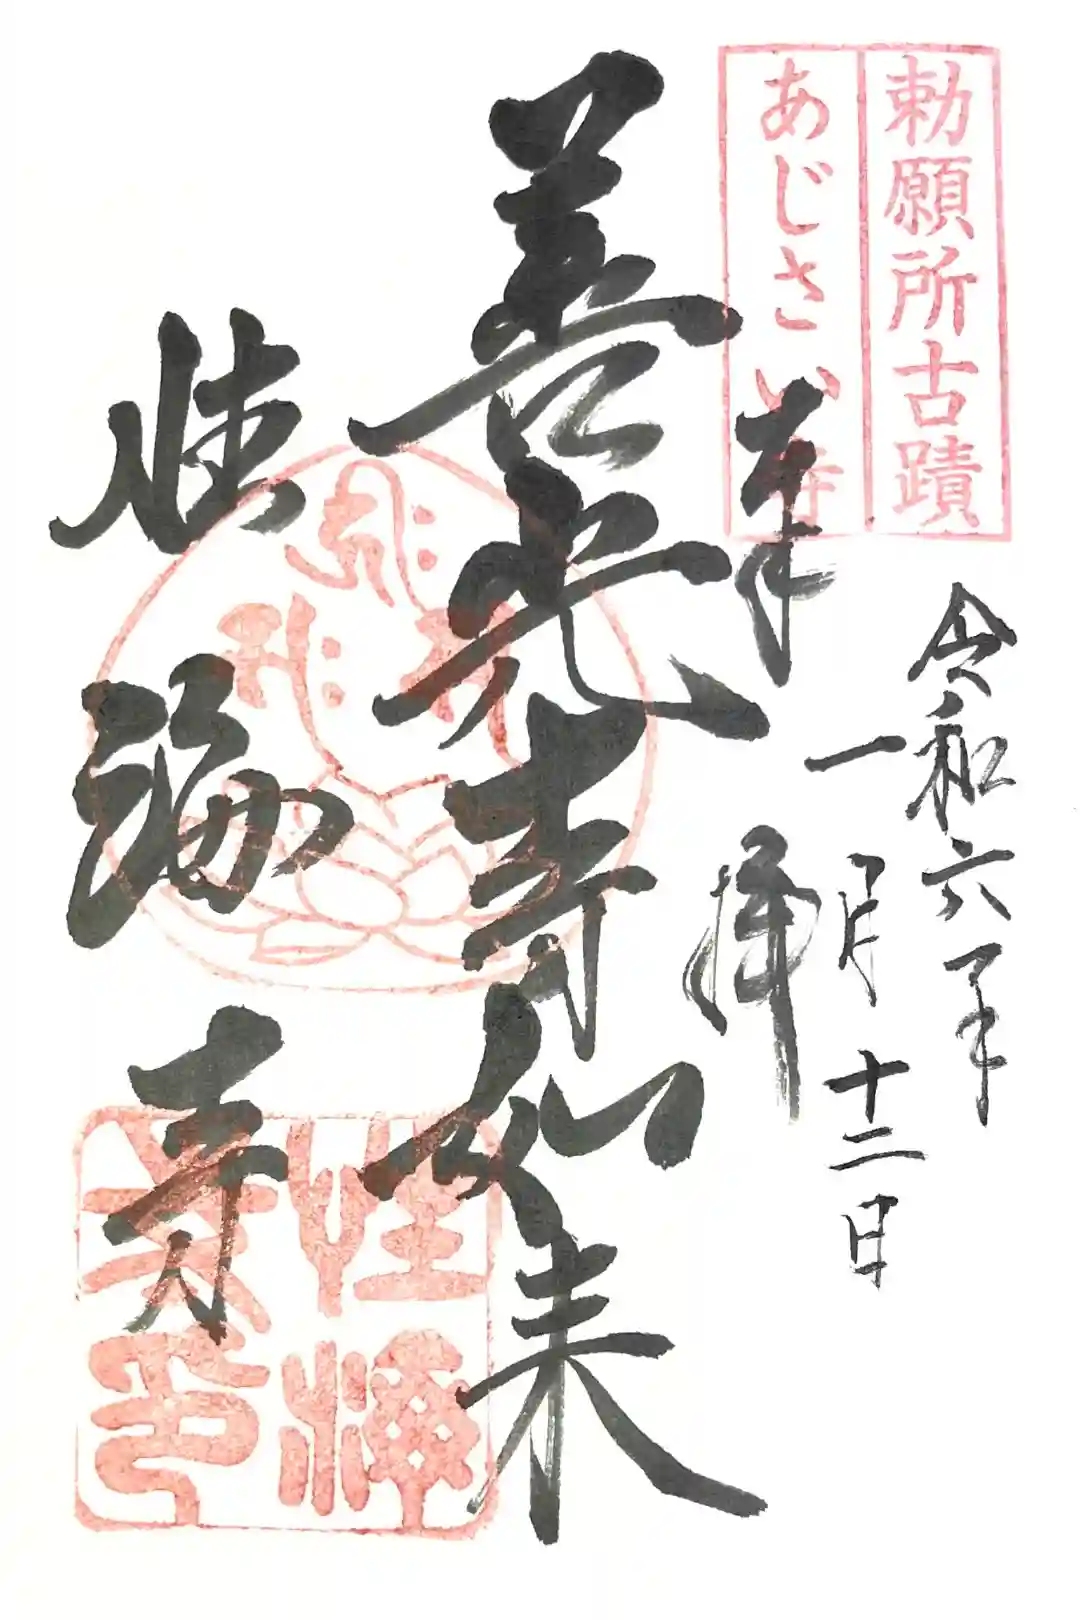 勅願所古蹟
あじさい寺
奉拝
令和六年
一月十二日
善光寺如来
性海寺
性海寺印